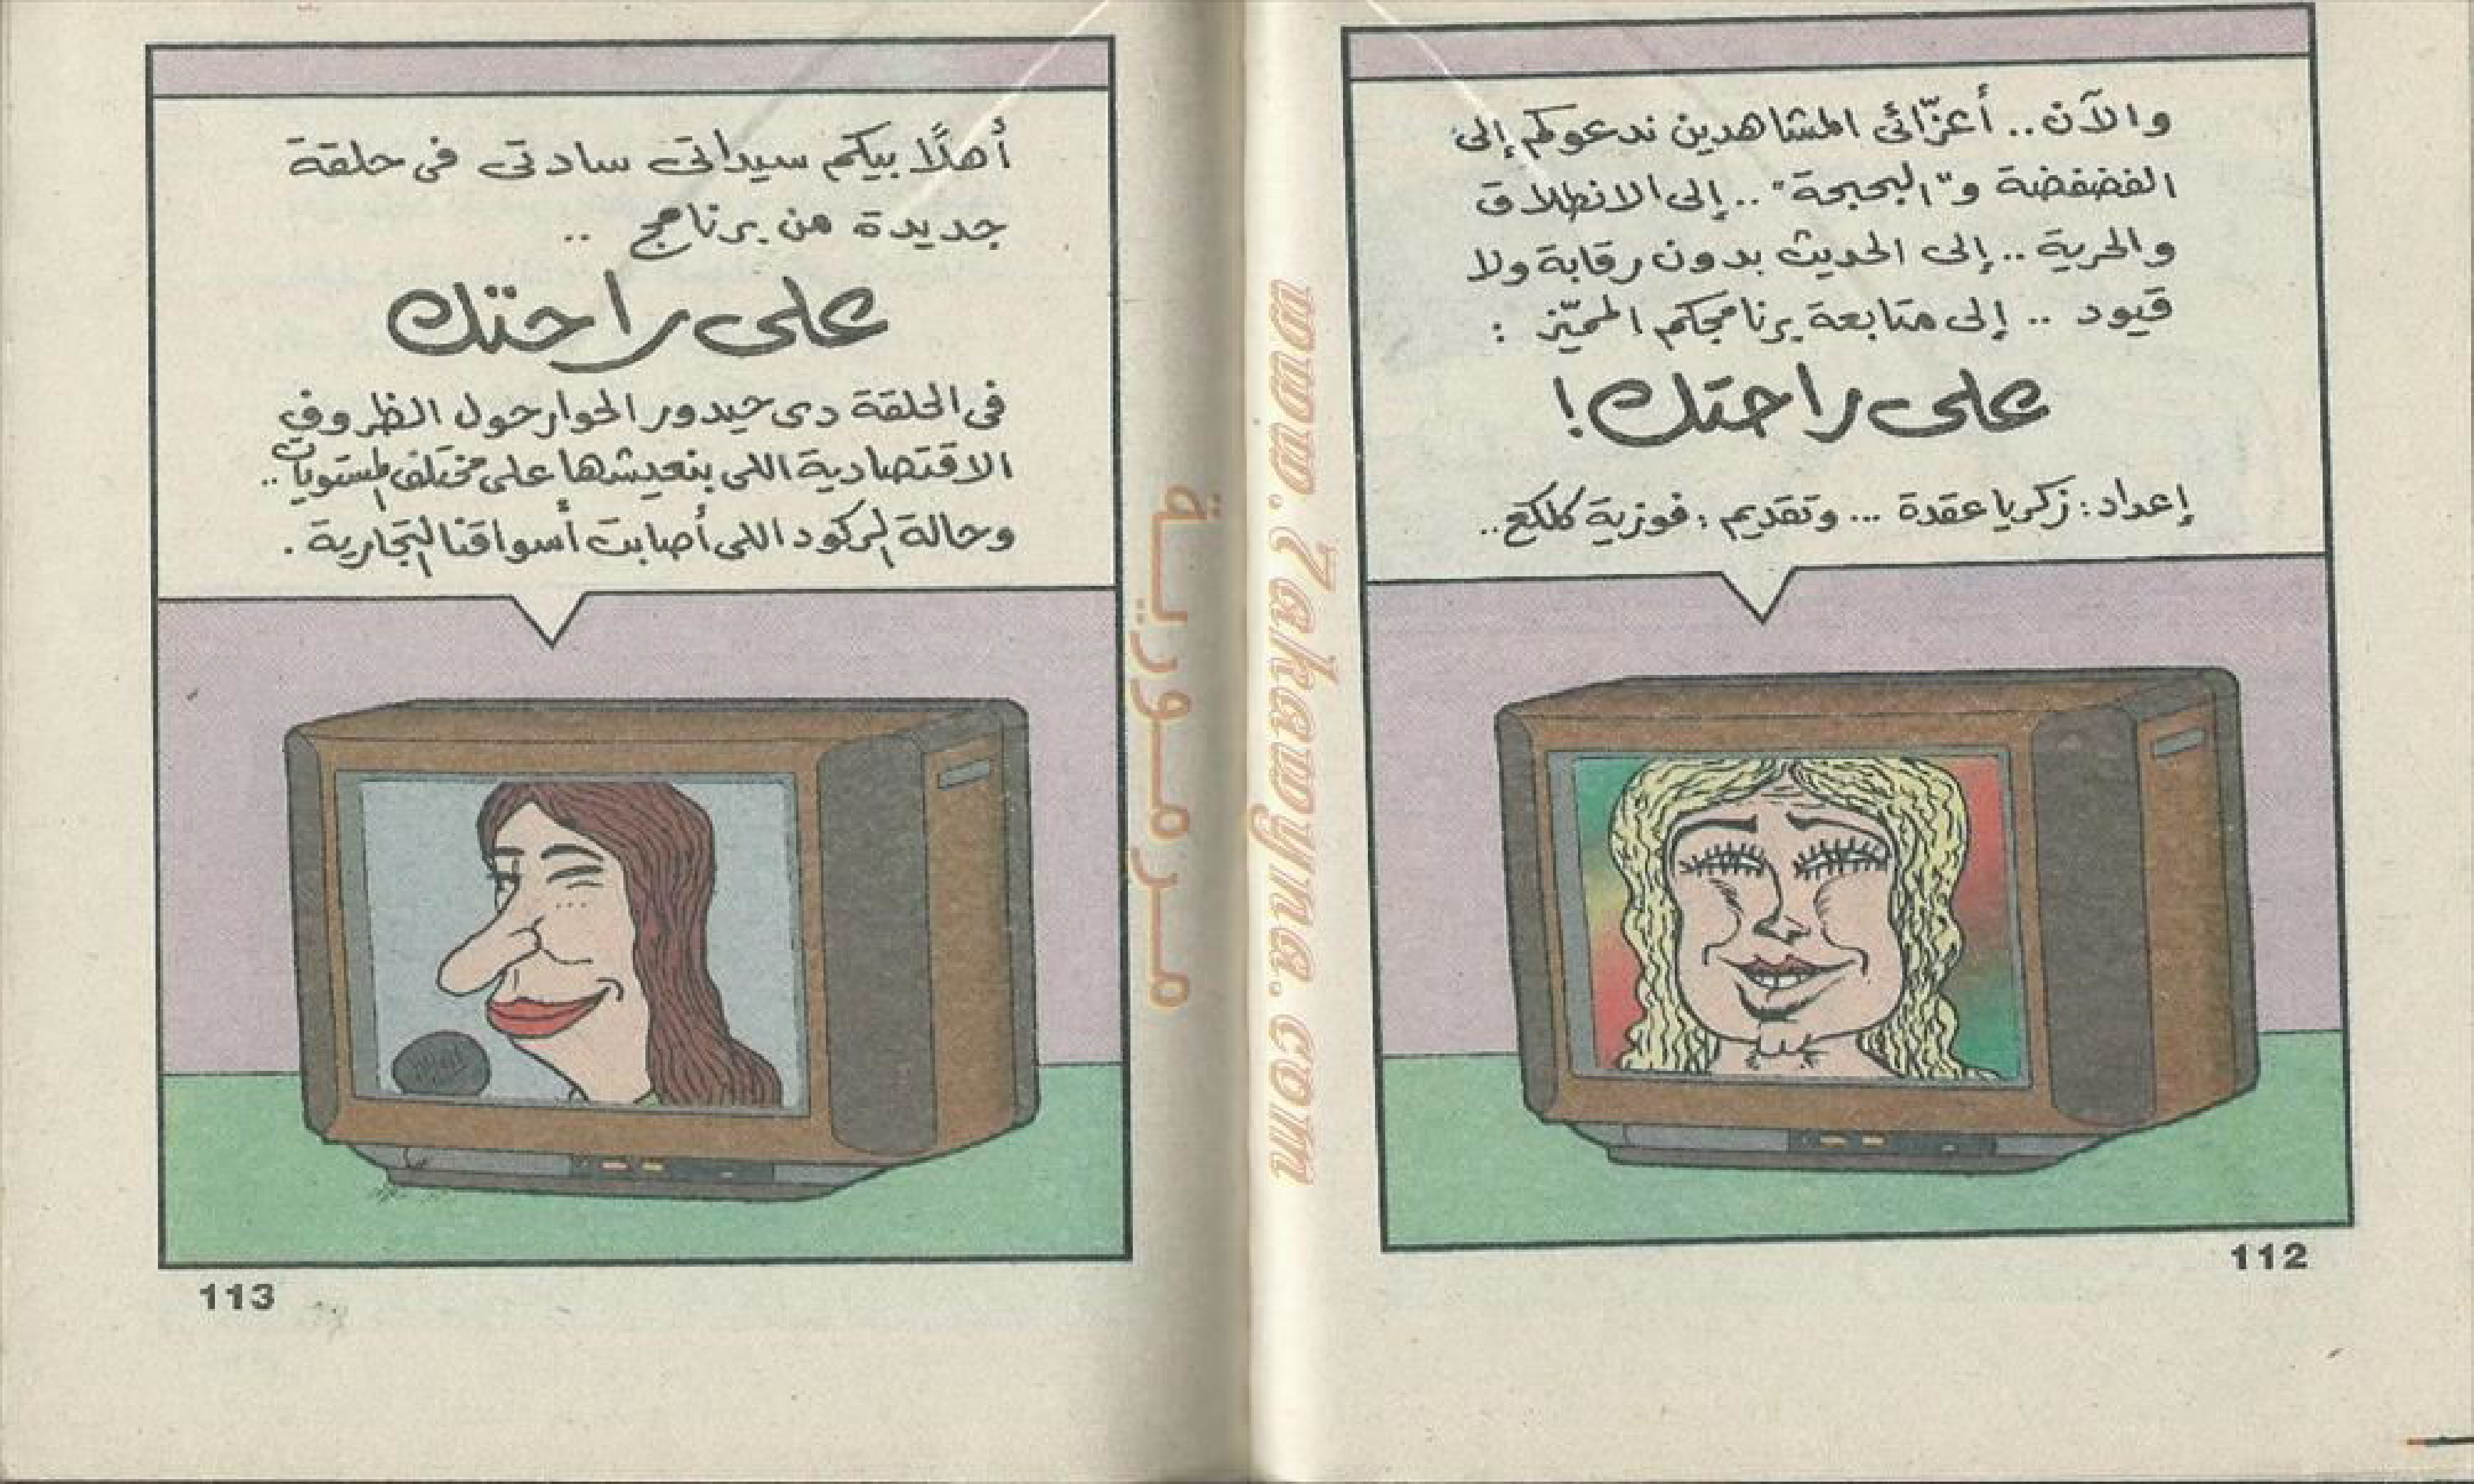 والآن.. أعزّائى المشاهدين ندعوكم إلى
الفضفضة و"البحبحة".. إلى الانطلاق
والحرية.. إلى الحديث بدون رقابة ولا
قيود .. إلى متابعة برنامجكم المميّز :
على راحتك!
إعداد: زكريا عقدة ... وتقديم: فوزية كلكع..
112
أهلاً بيكم سيداتى سادتى فى حلقة
جديدة من برنامج ..
على راحتك
فى الحلقة دى حيدور الحوار حول الظروف
الاقتصادية اللى بنعيشها على مختلف المستويات..
وحالة الركود اللى أصابت أسواقنا التجارية.
113
مرمورية
www.7akawyna.com